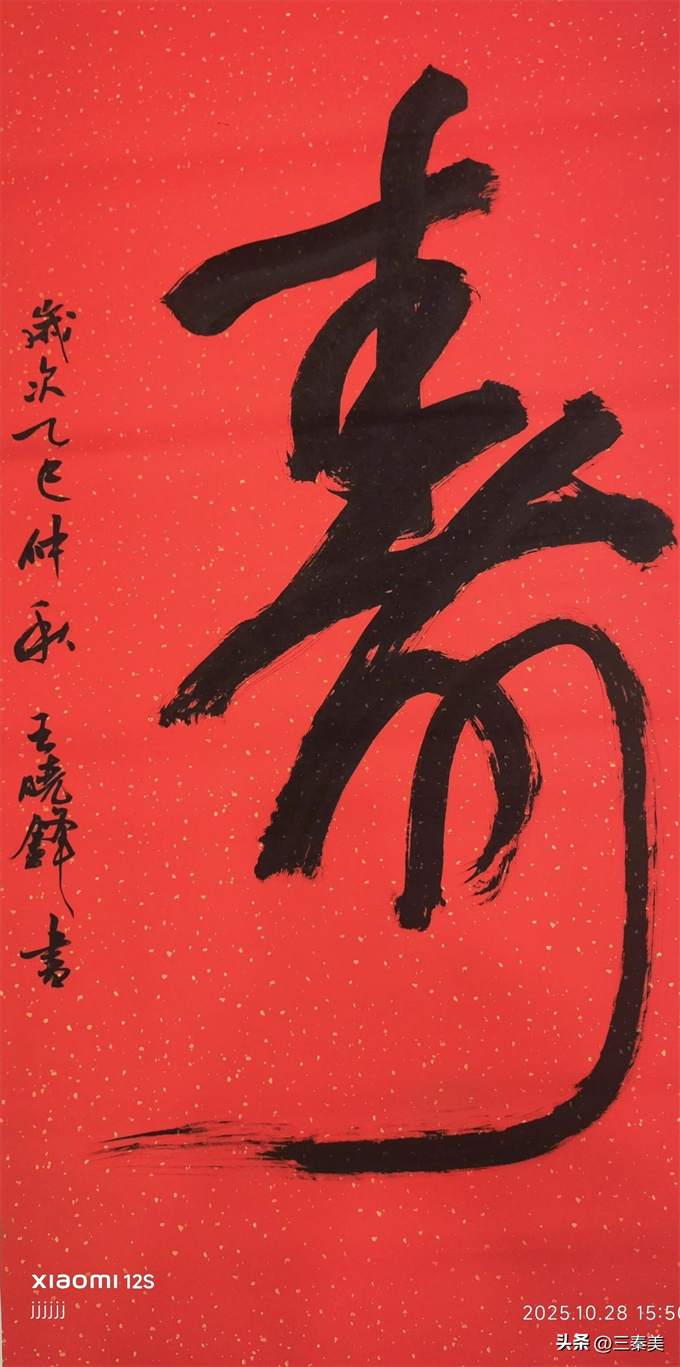 寿
歲次乙巳仲秋 王曉鋒書
xiaomi 12S
jjjjjj
2025.10.28 15:50
头条 @三秦美